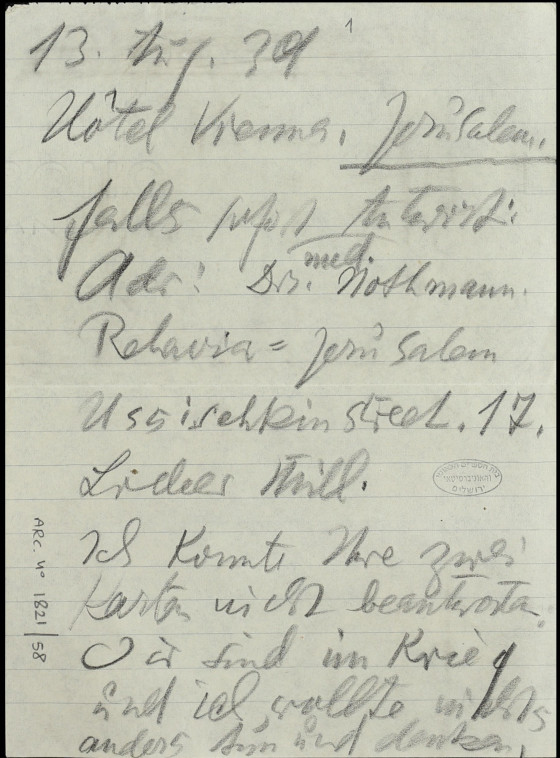 1
13. Aug. 39
Hôtel Vienna. Jerusalem.
falls sofort Antwort:
Adr: Dr. med. Nothmann.
Rehavia = Jerusalem
Ussischkin street. 17.
Lieber Thill.
Ich konnte Ihre zwei
Karten nicht beantworten.
Wir sind im Krieg
und ich wollte nichts
anders tun und denken.
ARC. No 1821/58
ירושלים